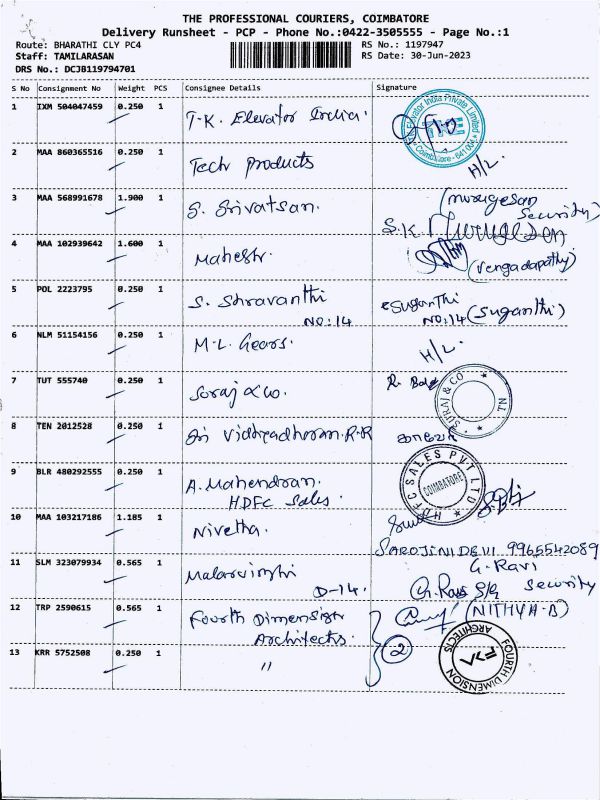 THE PROFESSIONAL COURIERS, COIMBATORE
Delivery Runsheet - PCP - Phone No.:0422-3505555 - Page No.:1
Route: BHARATHI CLY PC4 RS No.: 1197947
Staff: TAMILARASAN RS Date: 30-Jun-2023
DRS No.: DCJB119794701
S No Consignment No Weight PCS Consignee Details Signature
1 IXM 504047459 0.250 1 T.K. Elevator India.
2 MAA 860365516 0.250 1 Tech products H/L.
3 MAA 568991678 1.900 1 S. Srivatsan. (murugesan
Security)
S.K. Murugesan
4 MAA 102939642 1.600 1 Mahesh. (vengadapathy)
5 POL 2223795 0.250 1 S. Shravanthi Suganthi
NO:14 NO:14 (suganthi)
6 NLM 51154156 0.250 1 M.L. Gears. H/L.
7 TUT 555740 0.250 1 Soraj & Co. SURAJ & CO.
8 TEN 2012528 0.250 1 Sri Vidhyadharan.R.R
9 BLR 480292555 0.250 1 A. Mahendran. HDFC SALES PVT LTD
HDFC Sales. COIMBATORE
10 MAA 103217186 1.185 1 Nivetha.
SAROJINI DEVI 9965542089
11 SLM 323079934 0.565 1 G. Ravi
D-14. Security
12 TRP 2590615 0.565 1 Fourth Dimension (NITHYA.B)
Architects.
13 KRR 5752508 0.250 1 " 2 FOURTH DIMENSION ARCHITECTS